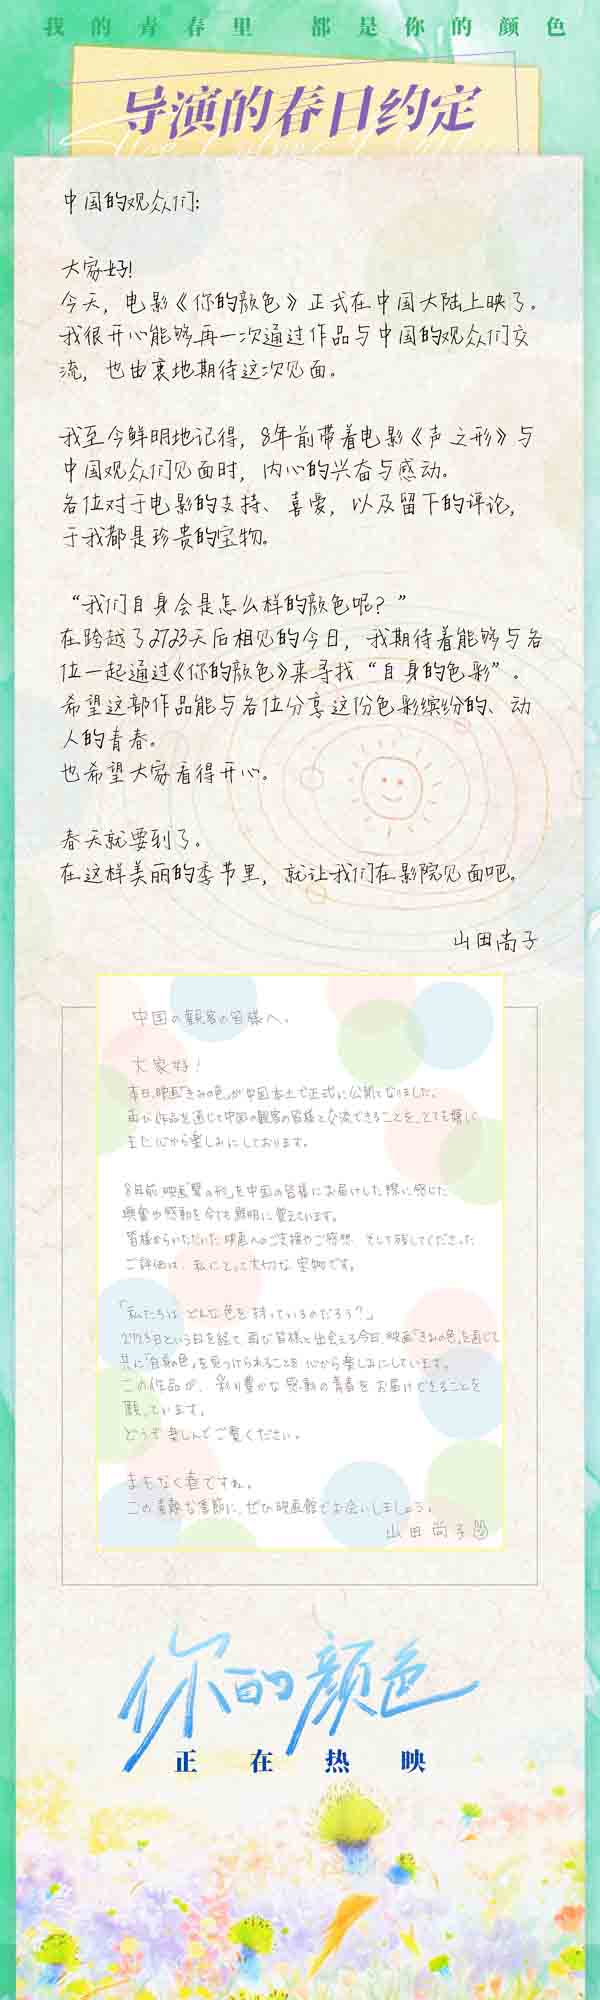 我的青春里 都是你的颜色
导演的春日约定
中国的观众们:
大家好!
今天，电影《你的颜色》正式在中国大陆上映了。
我很开心能够再一次通过作品与中国的观众们交
流，也由衷地期待这次见面。
我至今鲜明地记得，8年前带着电影《声之形》与
中国观众们见面时，内心的兴奋与感动。
各位对于电影的支持、喜爱，以及留下的评论，
于我都是珍贵的宝物。
“我们自身会是怎么样的颜色呢？”
在跨越了2723天后相见的今日，我期待着能够与各
位一起通过《你的颜色》来寻找“自身的色彩”。
希望这部作品能与各位分享这份色彩缤纷的、动
人的青春。
也希望大家看得开心。
春天就要到了。
在这样美丽的季节里，就让我们在影院见面吧。
山田尚子
中国の観客の皆様へ。
大家好!
本日、映画「きみの色」が中国本土で正式に公開となりました。
再び作品を通じて中国の観客の皆様と交流できることを、とても嬉しく
また心から楽しみにしております。
8年前、映画「聲の形」を中国の皆様にお届けした際に感じた
興奮や感動を今でも鮮明に覚えています。
皆様からいただいた映画へのご支援やご感想、そして残してくださった
ご評価は、私にとって大切な宝物です。
「私たちは、どんな色を持っているのだろう?」
2723日という日を経て、再び皆様と出会える今日、映画「きみの色」を通じて
共に「自身の色」を見つけられることを心から楽しみにしています。
この作品が、彩り豊かな感動の青春をお届けできることを
願っています。
どうぞ楽しんでご覧ください。
まもなく春ですね。
この素敵な季節に、ぜひ映画館でお会いしましょう。
山田尚子
你的颜色
正在热映